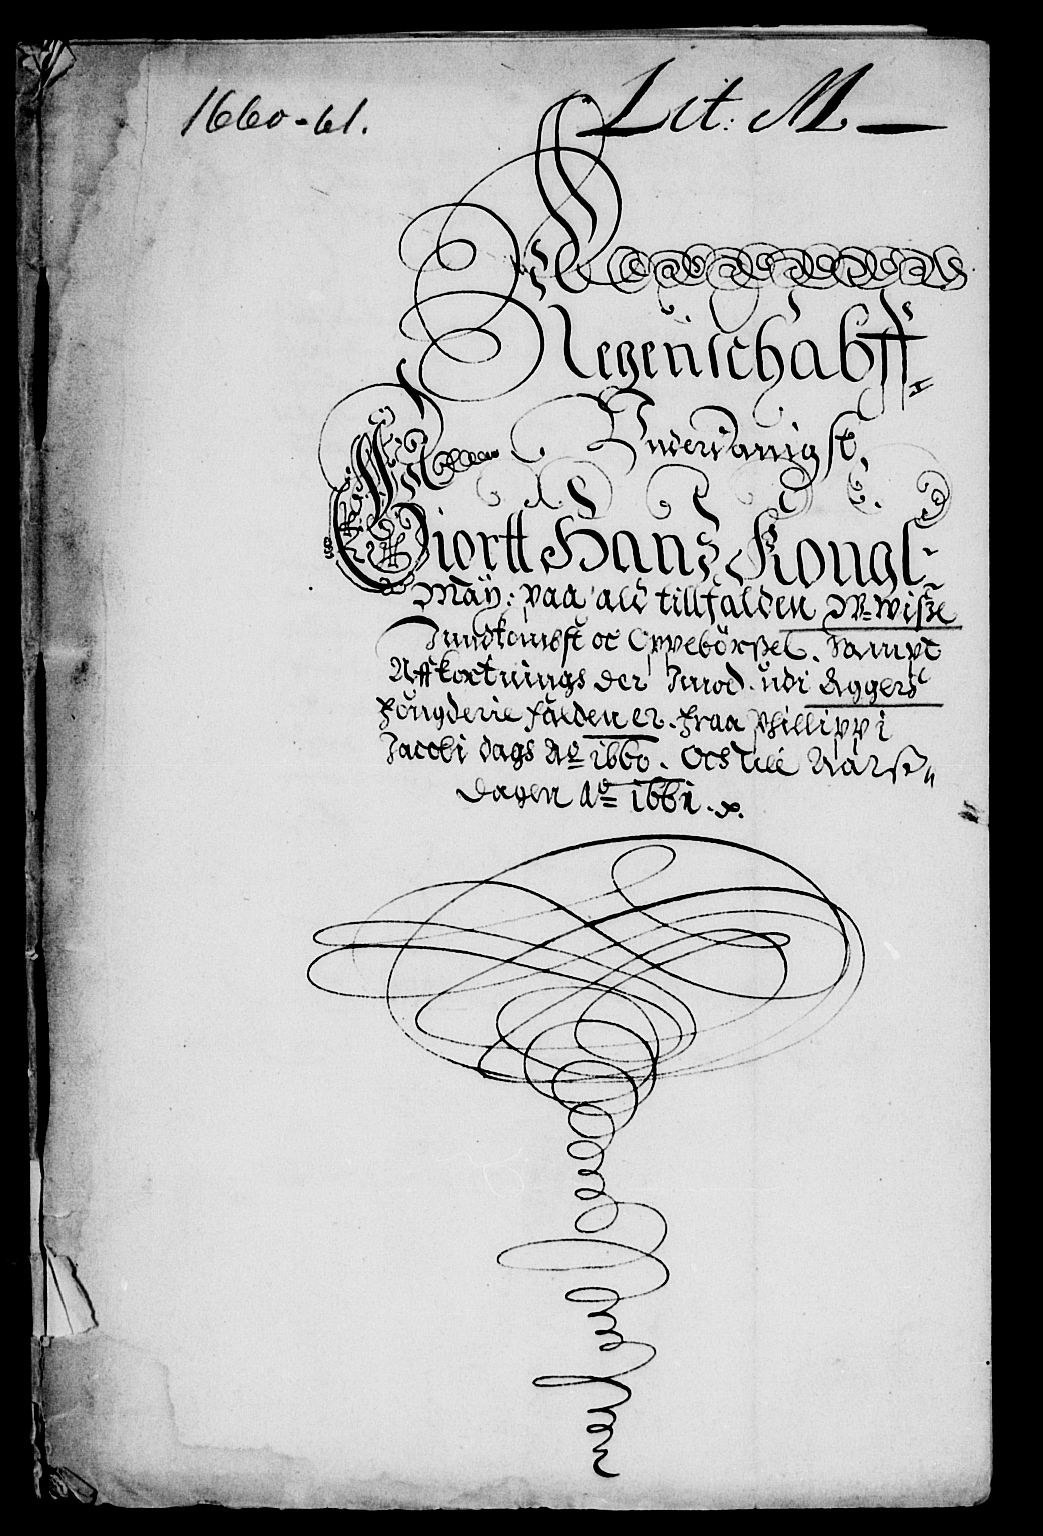 1660-61.
Lit: M
Regenschabff
Underdanigst,
Giortt Hanz Kongl:
May: paa ald tillfalden W-wisze
Inndkombst oc Oppebörszel. Sampt
Affkortnings der Imod. udi Aggers
Fougderie falden er. fraa Phillippi
Jacobi dags Ao 1660. Och till Aars=
dagen Ao 1661.